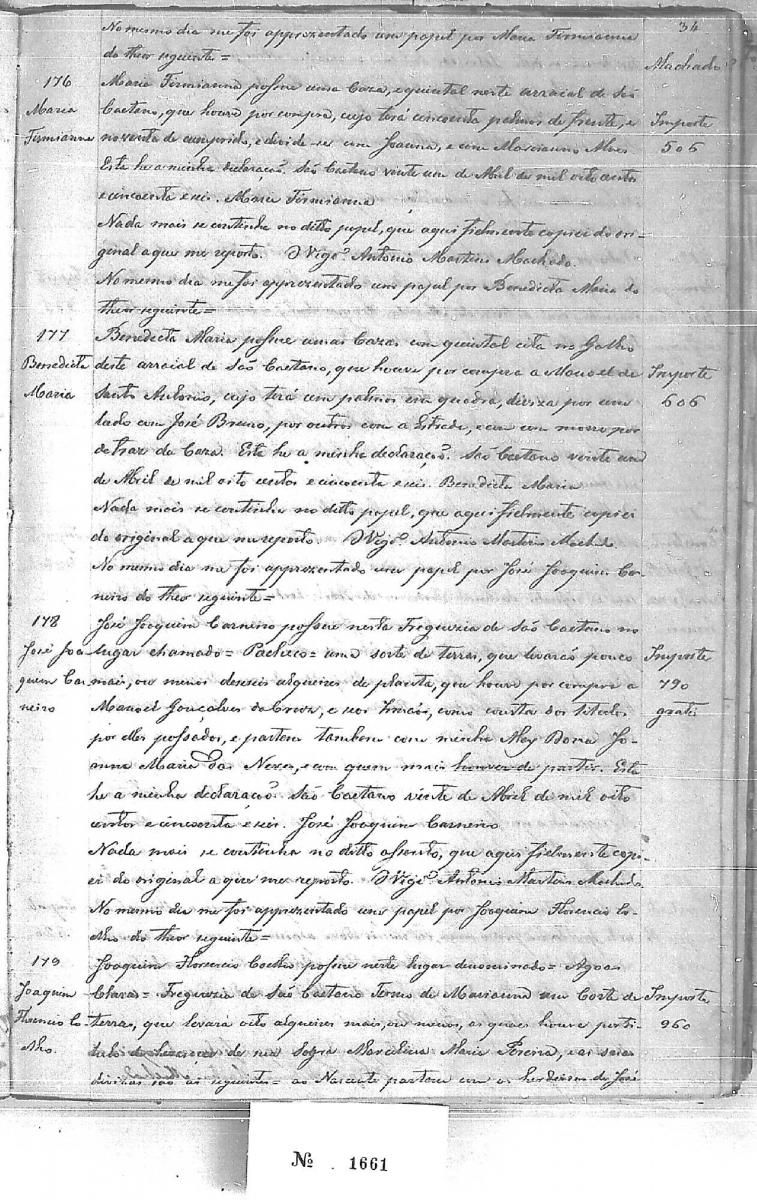 34
No mesmo dia me foi apprezentado um papel por Maria Firmianna
do theor seguinte=
Machado
176
Maria
Firmianna
Maria Firmianna possue uma Caza, e quintal neste arraial de São
Caetano, que houve por compra, cujo terá cincoenta palmos de frente, e
noventa de cumprido, e divide-se com Joanna, e com Marcianno Alves
Esta he a minha declaração. São Caetano vinte um de Abril de mil oito centos
e cincoenta e seis. Maria Firmianna
Importe
506
Nada mais se continha no ditto papel, que aqui fielmente copiei do ori-
ginal a que me reporto. O Vigº. Antonio Martins Machado.
No mesmo dia me foi apprezentado um papel por Benedicta Maria do
theor seguinte=
177
Benedicta
Maria
Benedicta Maria possue umas Cazas com quintal cita no Galho
deste arraial de São Caetano, que houve por compra a Manoel de
Santo Antonio, cujo terá um palmos em quadra, diviza por um
lado com José Bueno, por outros com a Estrada, e com um morro por
detraz da Caza. Esta he a minha declaração. São Caetano vinte um
de Abril de mil oito centos e cincoenta e seis. Benedicta Maria
Importe
606
Nada mais se continha no ditto papel, que aqui fielmente copiei
do original a que me reporto. O Vigº. Antonio Martins Machado
No mesmo dia me foi apprezentado um papel por José Joaquim Car-
neiro do theor seguinte=
178
José Joa
quim Car
neiro
José Joaquim Carneiro possue nesta Freguezia de São Caetano no
lugar chamado= Pacheco= uma sorte de terras, que levarão pouco
mais, ou menos deseseis alqueires de planta, que houve por compra a
Manoel Gonçalves da Cruz, e seos Irmãos, como consta dos titulos
por elles passados, e partem tambem com minha May Dona Jo-
anna Maria das Neves, e com quem mais houver de partir. Esta
he a minha declaração. São Caetano vinte de Abril de mil oito
centos e cincoenta e seis. José Joaquim Carneiro
Importe
790
gratis
Nada mais se continha no ditto assento, que aqui fielmente copi-
ei do original a que me reporto. O Vigº. Antonio Martins Machado
No mesmo dia me foi apprezentado um papel por Joaquim Florencio Co-
elho do theor seguinte=
179
Joaquim
Florencio Co
elho.
Joaquim Florencio Coelho possue neste lugar denominado= Agoas
Claras= Freguezia de São Caetano Termo de Marianna um Corte de
terras, que levará oito alqueires mais, ou menos, as quaes houve por ti-
tulo de herança de sua Sogra Marcelina Maria Pereira, e as suas
divizas são as seguintes= ao Nascente partem com os herdeiros de José
Importe
960
Nº 1661